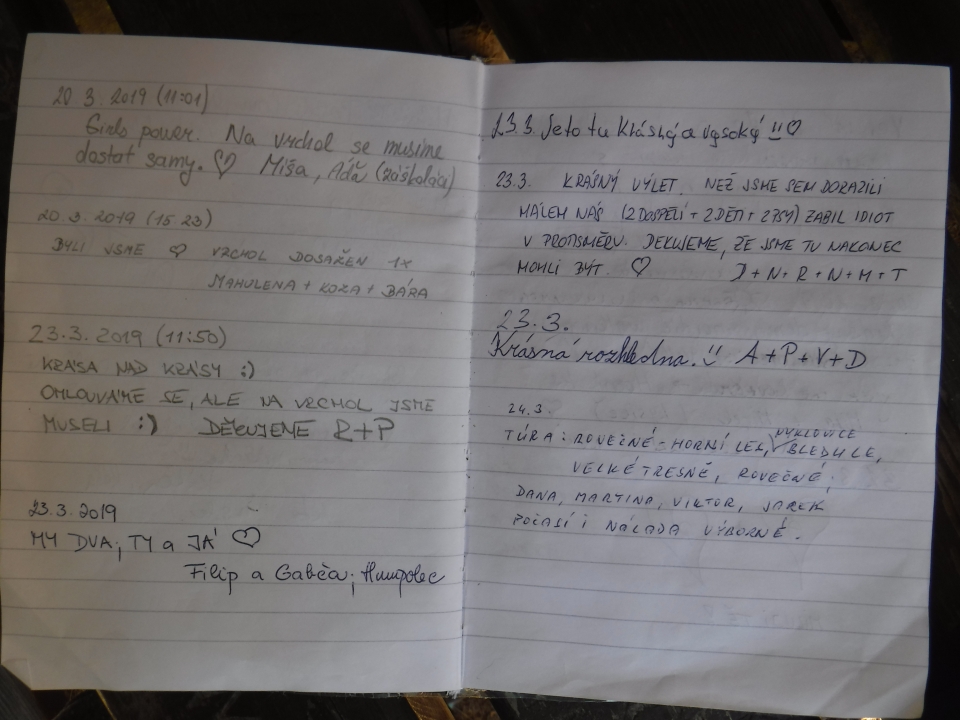 20.3.2019 (11:01)
Girls power. Na vrchol se musíme
dostat samy. ♡ Míša, Áďa (záškoláci)
20.3.2019 (15:23)
BYLI JSME ♡ VRCHOL DOSAŽEN 1X
MAHULENA + KOZA + BÁRA
23.3.2019 (11:50)
KRÁSA NAD KRÁSY :)
OMLOUVÁME SE, ALE NA VRCHOL JSME
MUSELI :) DĚKUJEME R+P
23.3.2019
MY DVA; TY a JÁ ♡
Filip a Gabča; Humpolec
23.3. Jeto tu Krásný a vysoký !! ♡
23.3. KRÁSNÝ VÝLET. NEŽ JSME SEM DORAZILI
MÁLEM NÁS (2 DOSPĚLÍ + 2 DĚTI + 2 PSY) ZABIL IDIOT
V PROTISMĚRU. DEKUJEME, ŽE JSME TU NAKONEC
MOHLI BÝT. ♡ D + N + R + N + M + T
23.3.
Krásná rozhledna. :) A + P + V + D
24.3.
NYKLOVICE
TÚRA: ROVEČNÉ - HORNÍ LES, BLEDULE,
VELKÉ TRESNÉ, ROVEČNÉ;
DANA, MARTINA, VIKTOR, JAREK
POČASÍ I NÁLADA VÝBORNÉ.